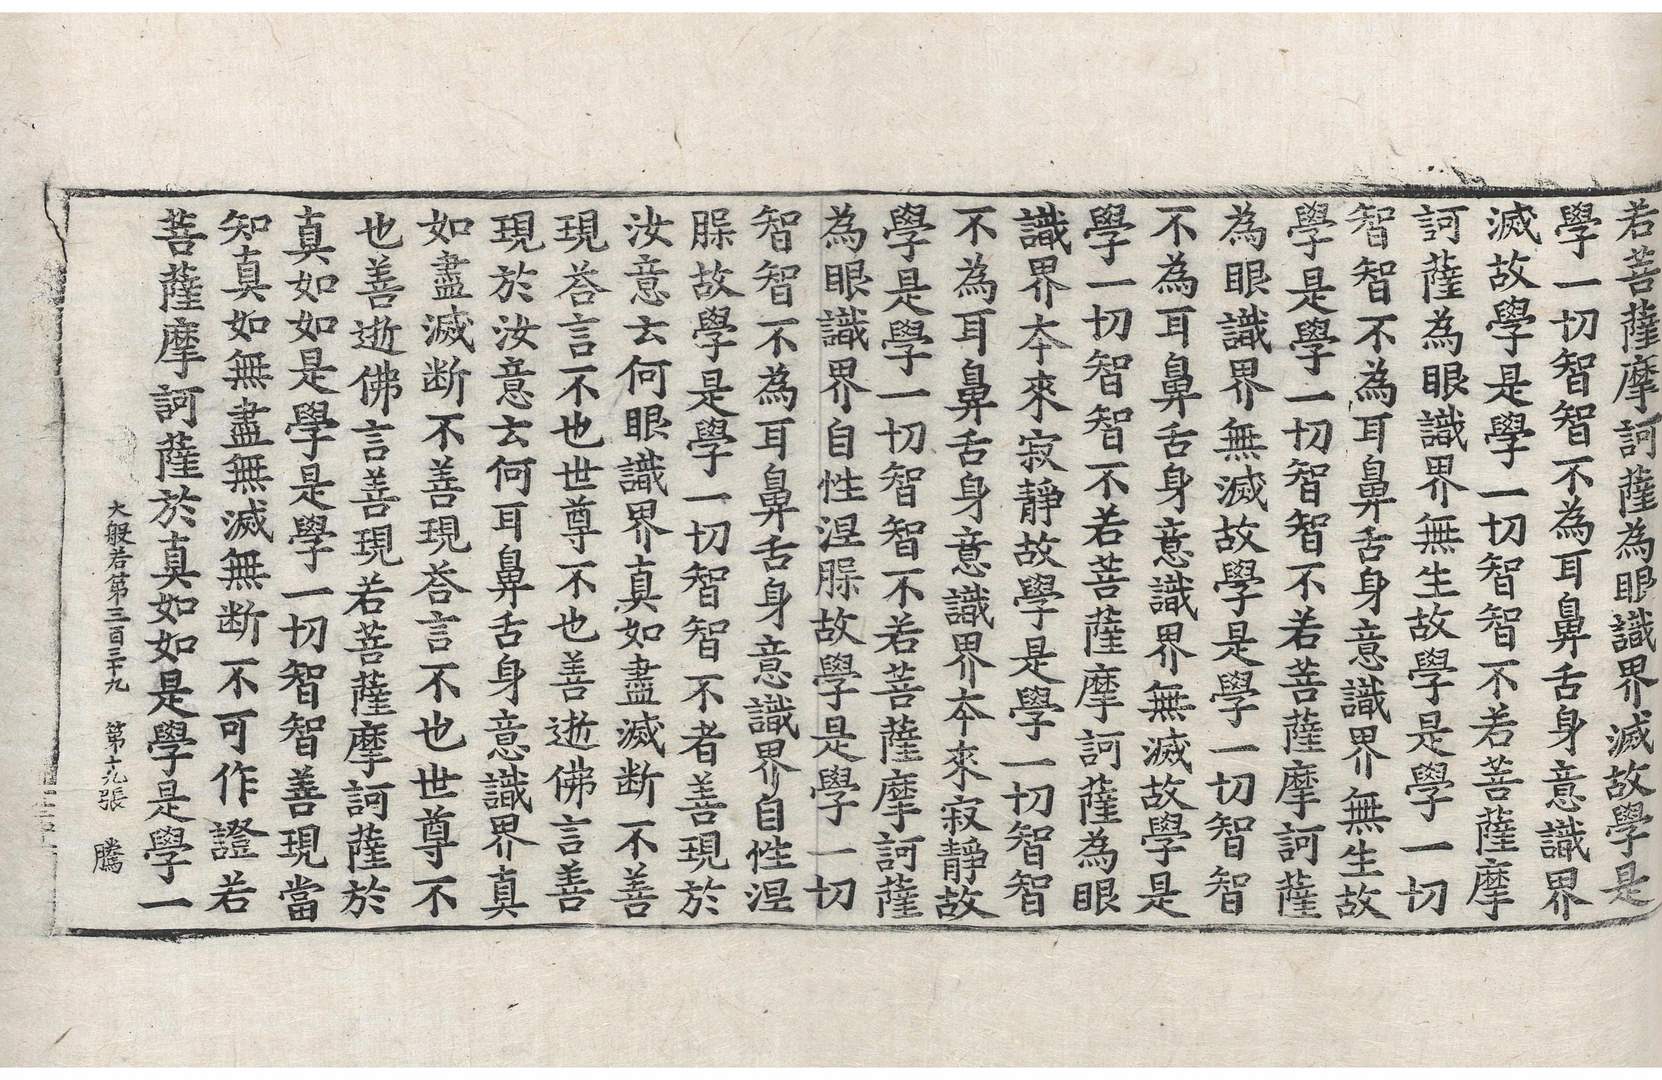 若菩薩摩訶薩為眼識界滅故學是
學一切智智不為耳鼻舌身意識界
滅故學是學一切智智不若菩薩摩
訶薩為眼識界無生故學是學一切
智智不為耳鼻舌身意識界無生故
學是學一切智智不若菩薩摩訶薩
為眼識界無滅故學是學一切智智
不為耳鼻舌身意識界無滅故學是
學一切智智不若菩薩摩訶薩為眼
識界夲來寂靜故學是學一切智智
不為耳鼻舌身意識界夲來寂靜故
學是學一切智智不若菩薩摩訶薩
為眼識界自性涅槃故學是學一切
智智不為耳鼻舌身意識界自性涅
槃故學是學一切智智不者善現於
汝意云何眼識界真如盡滅断不善
現荅言不也世尊不也善逝佛言善
現於汝意云何耳鼻舌身意識界真
如盡滅断不善現荅言不也世尊不
也善逝佛言善現若菩薩摩訶薩於
真如如是學是學一切智智善現當
知真如無盡無滅無断不可作證若
菩薩摩訶薩於真如如是學是學一
大般若第三百三十九 第十九張 騰